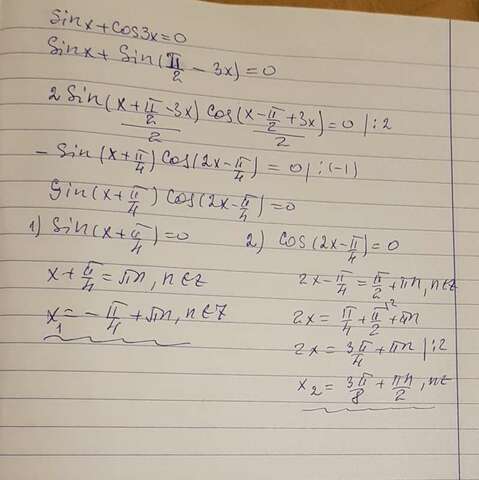 sinx+cos3x=0
sinx+sin(π/2 - 3x)=0
2sin((x+π/2-3x)/2)cos((x-π/2+3x)/2)=0 |:2
-sin(x+π/4)cos(2x-π/4)=0 |:(-1)
sin(x+π/4)cos(2x-π/4)=0
1) sin(x+π/4)=0
x+π/4=πn, n∈Z
x₁=-π/4+πn, n∈Z
2) cos(2x-π/4)=0
2x-π/4=π/2+πn, n∈Z
2x=π/4+π/2^{\2}+πn
2x=3π/4+πn |:2
x₂=3π/8+πn/2, n∈